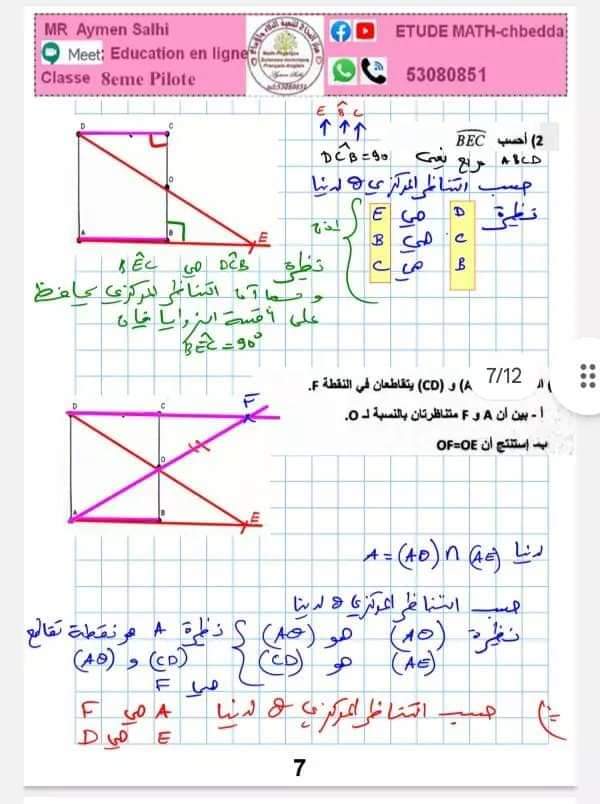 MR Aymen Salhi
Meet: Education en ligne
Classe 8eme Pilote
ETUDE MATH-chbedda
53080851
2) أحسب BEC
E B̂ C
ABCD مربع يعني DĈB=90
حسب التناظر المركزي O لدينا
نظيرة D هي E
C هي B
B هي C
إذن
نظيرة DĈB هي BÊC
وبما أن التناظر المركزي يحافظ
على أقيسة الزوايا فإن
BÊC=90°
D C
O
A B E
7/12
A) و (CD) يتقاطعان في النقطة F.
أ - بين أن A و F متناظرتان بالنسبة لـ O.
ب- إستنتج أن OF=OE
D C F
O
A B E
لدينا A = (AO) ∩ (AE)
حسب التناظر المركزي O لدينا
نظيرة (AO) هو (AO) نظيرة A هو نقطة تقاطع
(AE) هو (CD) (CD) و (AO)
هي F
ب) حسب التناظر المركزي O لدينا A هي F
E هي D
7